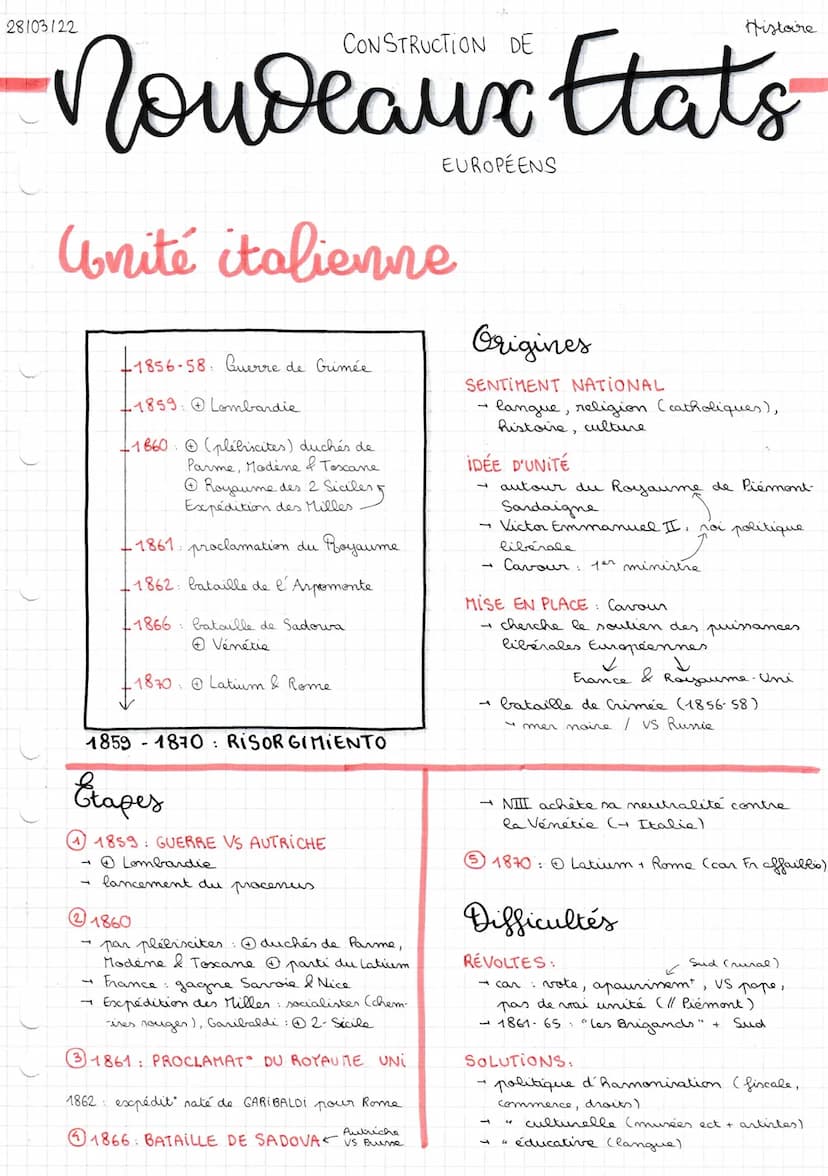 28/03/22
Histoire
CONSTRUCTION DE
Nouveaux Etats
EUROPÉENS
Unité italienne
1856-58: Guerre de Crimée
1859: ⊕ Lombardie
1860: ⊕ (plébiscites) duchés de
Parme, Modène & Toscane
⊕ Royaume des 2 Siciles
Expédition des Milles
1861: proclamation du Royaume
1862: bataille de l'Aspromonte
1866: bataille de Sadowa
⊕ Vénétie
1870: ⊕ Latium & Rome
1859 - 1870 : RISORGIMIENTO
Origines
SENTIMENT NATIONAL
→ langue, religion (catholiques),
histoire, culture
IDÉE D'UNITÉ
→ autour du Royaume de Piémont-
Sardaigne
→ Victor Emmanuel II, roi politique
libérale
→ Cavour : 1er ministre
MISE EN PLACE : Cavour
→ cherche le soutien des puissances
libérales Européennes
France & Royaume-Uni
→ bataille de Crimée (1856-58)
→ mer noire / VS Russie
Étapes
① 1859 : GUERRE VS AUTRICHE
→ ⊕ Lombardie
→ lancement du processus
② 1860
→ par plébiscites : ⊕ duchés de Parme,
Modène & Toscane ⊕ parti du Latium
→ France : gagne Savoie & Nice
→ Expédition des Milles : socialistes (chem-
ires rouges), Garibaldi : ⊕ 2-Sicile
③ 1861 : PROCLAMAT° DU ROYAUME UNI
1862 : expédit° raté de GARIBALDI pour Rome
④ 1866 : BATAILLE DE SADOVA ← Autriche
VS Prusse
→ NIII achète sa neutralité contre
la Vénétie (→ Italie)
⑤ 1870 : ⊕ Latium + Rome (car Fr affaiblie)
Difficultés
RÉVOLTES :
Sud (rural)
→ car : vote, apauvrissemt, VS pape,
pas de vrai unité (// Piémont)
→ 1861-65 : "Les Brigands" + Sud
SOLUTIONS :
→ politique d'harmonisation (fiscale,
commerce, droits)
→ " culturelle (musées ect + artistes)
→ " éducative (langue)